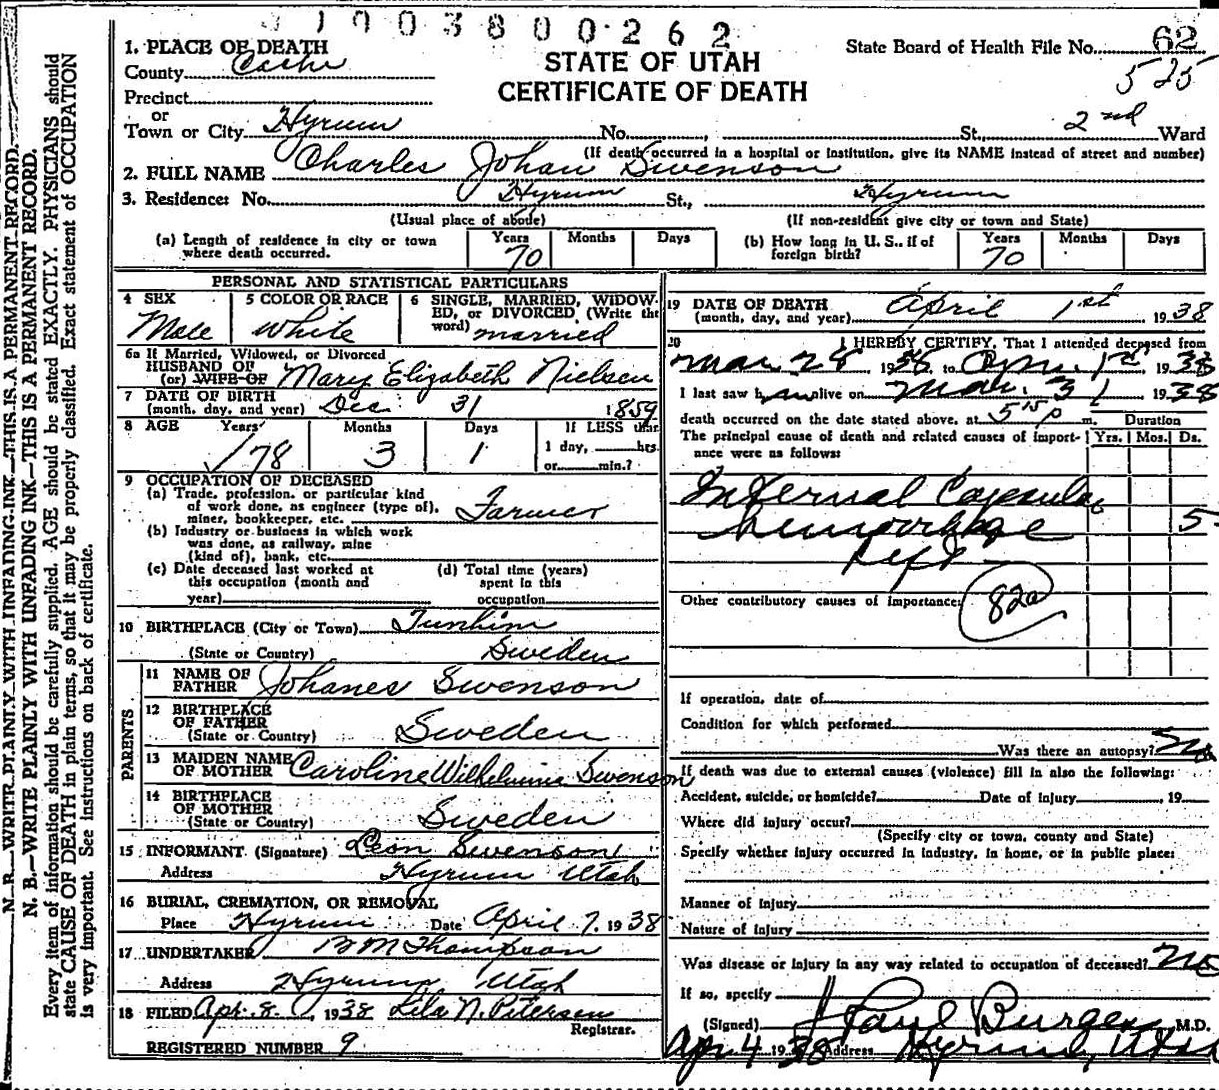 N. B.—WRITE PLAINLY WITH UNFADING INK—THIS IS A PERMANENT RECORD.
N. B.—WRITE PLAINLY WITH UNFADING INK—THIS IS A PERMANENT RECORD.
Every item of information should be carefully supplied. AGE should be stated EXACTLY. PHYSICIANS should
state CAUSE OF DEATH in plain terms, so that it may be properly classified. Exact statement of OCCUPATION
is very important. See instructions on back of certificate.
1. PLACE OF DEATH
County Cache
Precinct
or
Town or City Hyrum No. , St., 2nd Ward
STATE OF UTAH
CERTIFICATE OF DEATH
State Board of Health File No. 62
525
(If death occurred in a hospital or institution, give its NAME instead of street and number)
2. FULL NAME Charles Johan Swenson
3. Residence: No. Hyrum St., Hyrum
(Usual place of abode) (If non-resident give city or town and State)
(a) Length of residence in city or town where death occurred. Years 70 Months Days
(b) How long in U. S., if of foreign birth? Years 70 Months Days
PERSONAL AND STATISTICAL PARTICULARS
4 SEX Male
5 COLOR OR RACE White
6 SINGLE, MARRIED, WIDOWED, or DIVORCED, (Write the word) married
6a If Married, Widowed, or Divorced
HUSBAND OF
(or) WIFE OF Mary Elizabeth Nielsen
7 DATE OF BIRTH
(month, day, and year) Dec 31 1859
8 AGE Years 78 Months 3 Days 1 If LESS than
1 day, hrs.
or min.?
9 OCCUPATION OF DECEASED
(a) Trade, profession, or particular kind
of work done, as engineer (type of),
miner, bookkeeper, etc. Farmer
(b) Industry or business in which work
was done, as railway, mine
(kind of), bank, etc.
(c) Date deceased last worked at
this occupation (month and
year)
(d) Total time (years)
spent in this
occupation
10 BIRTHPLACE (City or Town)
(State or Country) Sweden
PARENTS
11 NAME OF
FATHER Johanes Swenson
12 BIRTHPLACE
OF FATHER
(State or Country) Sweden
13 MAIDEN NAME
OF MOTHER Caroline Wilhelmina Swenson
14 BIRTHPLACE
OF MOTHER
(State or Country) Sweden
15 INFORMANT (Signature) Leon Swenson
Address Hyrum Utah
16 BURIAL, CREMATION, OR REMOVAL
Place Hyrum Date April 7, 1938
17 UNDERTAKER B M Thompson
Address Hyrum, Utah
18 FILED Apr. 8 1938 Lila N. Petersen
Registrar.
REGISTERED NUMBER 9
19 DATE OF DEATH
(month, day, and year) April 1st, 1938
20 I HEREBY CERTIFY, That I attended deceased from
Mar 28 19 to Apr. 1st, 1938
I last saw h alive on Mar. 31 1938
death occurred on the date stated above, at 5 15 p m. Duration
The principal cause of death and related causes of importance were as follows: Yrs. Mos. Ds.
Internal Capsular
hemorrhage 5
Left
Other contributory causes of importance: 82a
If operation, date of
Condition for which performed
Was there an autopsy? No
If death was due to external causes (violence) fill in also the following:
Accident, suicide, or homicide? Date of injury , 19
Where did injury occur?
(Specify city or town, county and State)
Specify whether injury occurred in industry, in home, or in public place:
Manner of Injury
Nature of Injury
Was disease or injury in any way related to occupation of deceased? No
If so, specify
(Signed) Burgess M.D.
Apr 4 1938 Address Hyrum, Utah